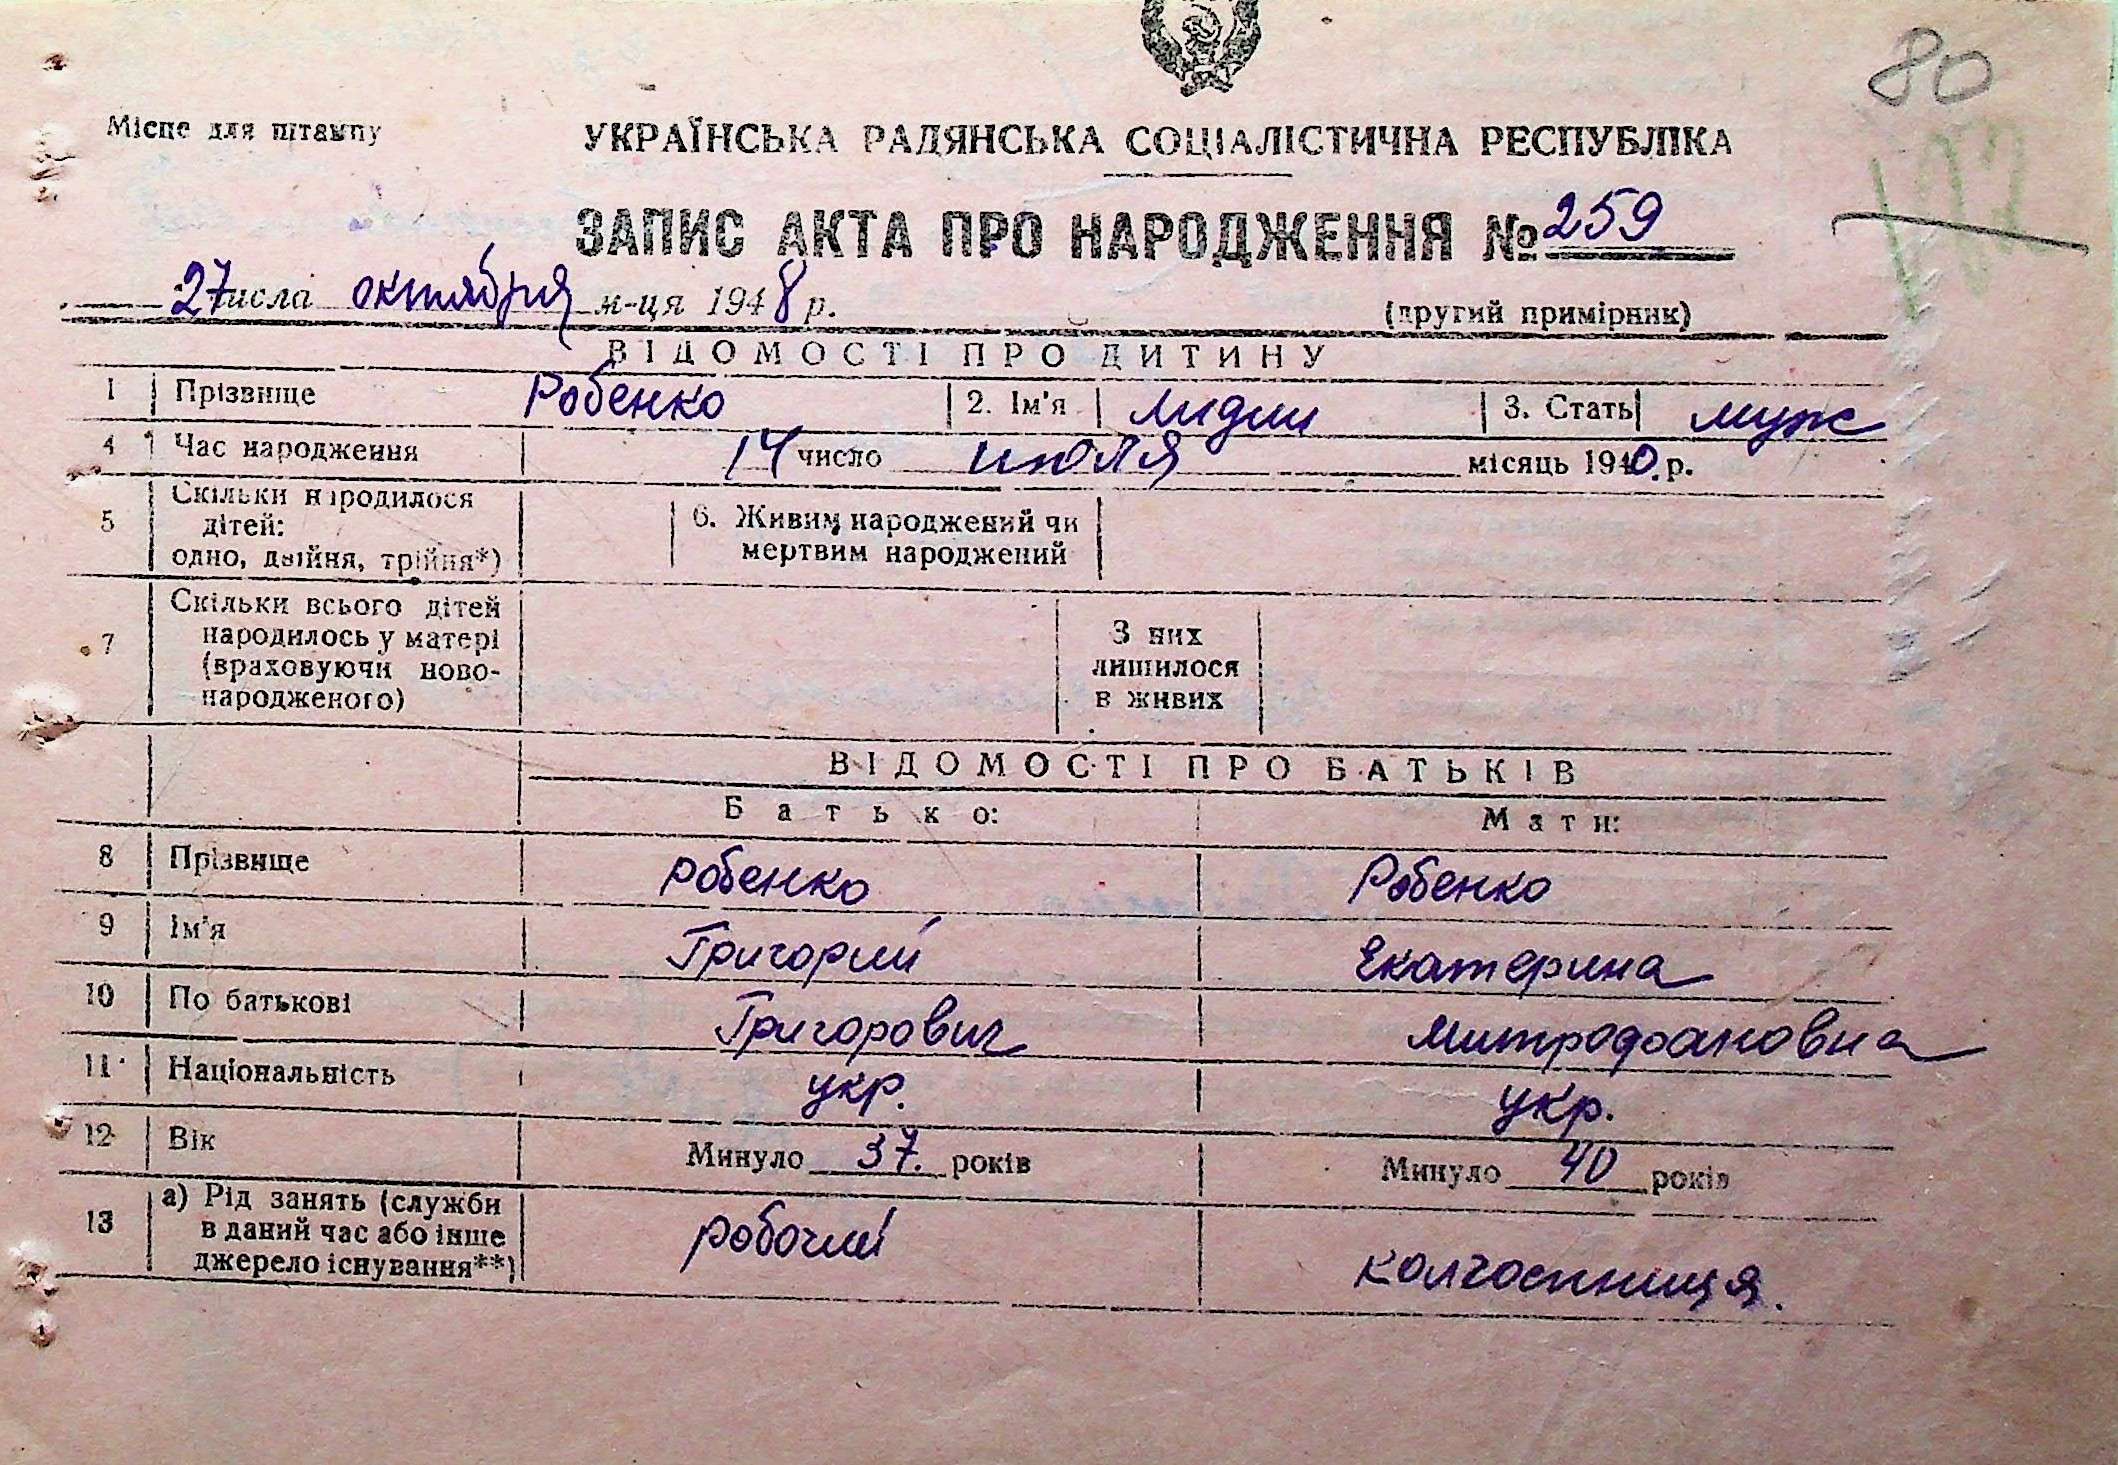 80
Місце для штампу
УКРАЇНСЬКА РАДЯНСЬКА СОЦІАЛІСТИЧНА РЕСПУБЛІКА
ЗАПИС АКТА ПРО НАРОДЖЕННЯ № 259
27 числа октября м-ця 1948 р.
(другий примірник)
ВІДОМОСТІ ПРО ДИТИНУ
1 Прізвище Робенко 2. Ім'я Лидии 3. Стать муж
4 Час народження 14 число июля місяць 1940. р.
5 Скільки народилося
дітей:
одно, двійня, трійня*)
6. Живим народжений чи
мертвим народжений
7 Скільки всього дітей
народилось у матері
(враховуючи ново-
народженого)
З них
лишилося
в живих
ВІДОМОСТІ ПРО БАТЬКІВ
Батько: Мати:
8 Прізвище Робенко Робенко
9 Ім'я Григорий Екатерина
10 По батькові Григорович Митрофановна
11 Національність укр. укр.
12 Вік Минуло 37. років Минуло 40 років
13 а) Рід занять (служби
в даний час або інше
джерело існування**)
робочий колгоспниця.